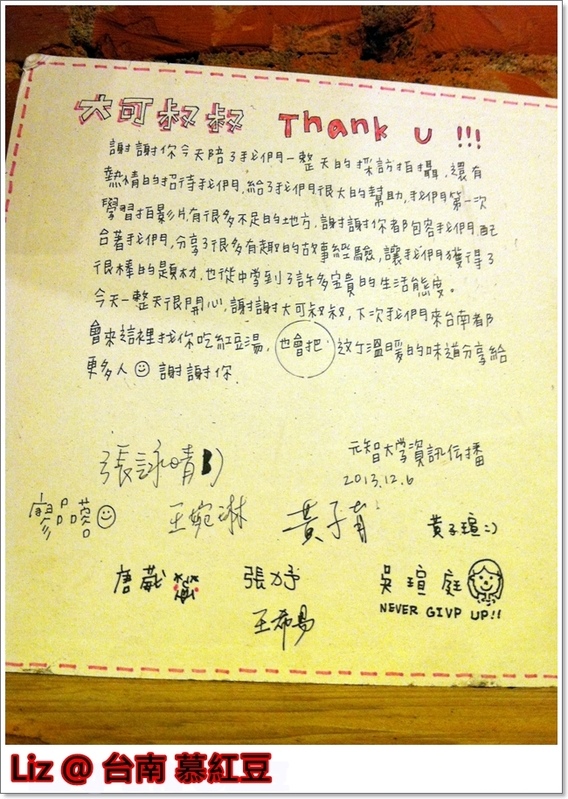 大可叔叔 Thank U !!!
謝謝你今天陪了我們一整天的採訪拍攝,還有
熱情的招待我們,給了我們很大的幫助,我們第一次
學習拍影片有很多不足的地方,謝謝你都包容我們,配
合著我們,分享了很多有趣的故事經驗,讓我們獲得了
很棒的題材,也從中學到了許多寶貴的生活態度。
今天一整天很開心,謝謝大可叔叔,下次我們來台南都
會來這裡找你吃紅豆湯,也會把這份溫暖的味道分享給
更多人☺ 謝謝你.
元智大学資訊伝播
2013.12.6
張詠晴
廖品蓉☺ 王婉琳 黃子育 黃子瑄:)
唐葳 張妤 吳瑄庭
NEVER GIVP UP!!
王希易
Liz @ 台南 慕紅豆